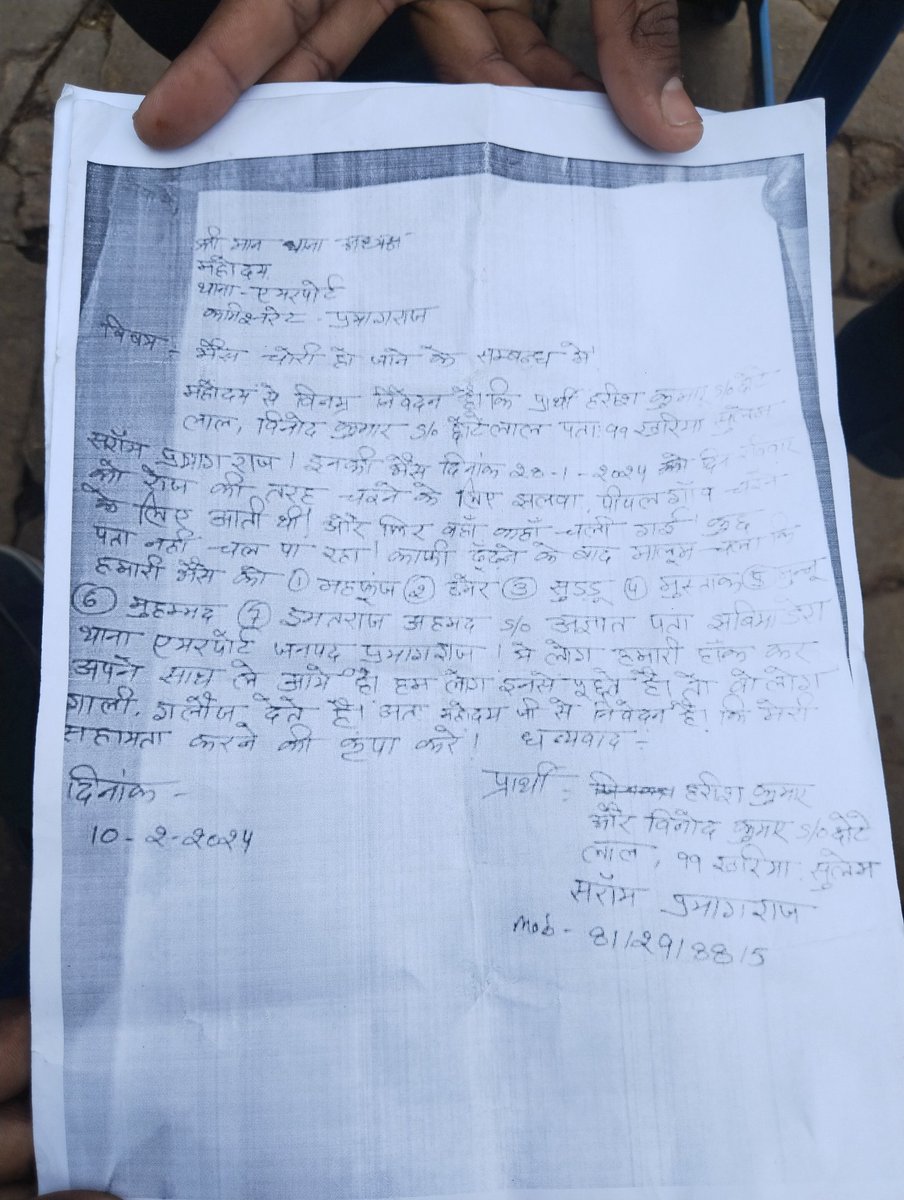 श्री मान थाना अध्यक्ष
महोदय
थाना - एयरपोर्ट
कमिश्नरेट - प्रयागराज
विषय :- भैंस चोरी हो जाने के सम्बन्ध में।
महोदय से विनम्र निवेदन है। कि प्रार्थी हरीश कुमार s/o छोटे
लाल, विनोद कुमार s/o छोटे लाल पता: ११ खरिया सुलेम
सराॅय प्रयागराज। इनकी भैंस दिनांक 28-1-2024 को दिन रविवार
को रोज की तरह चरने के लिए झलवा, पीपल गाँव चरने
के लिए आती थी। और फिर वहाँ कहाँ चली गई। कुछ
पता नहीं चल पा रहा। काफी ढूंढने के बाद मालूम चला कि
हमारी भैंस को ① महफूज ② ③ गुड्डू ④ मुस्ताक ⑤
⑥ मुहम्मद ⑦ इमतराज अहमद s/o अज्ञात पता
थाना एयरपोर्ट जनपद प्रयागराज। ये लोग हमारी हाँक कर
अपने साथ ले आये है। हम लोग इनसे पूछते है। तो लोग
गाली, गलौज देते है। अतः महोदय जी से निवेदन है। कि मेरी
सहायता करने की कृपा करें। धन्यवाद -
दिनांक -
10-2-2024
प्रार्थी :- हरीश कुमार
और विनोद कुमार s/o छोटे
लाल, ११ खरिया, सुलेम
सराॅय प्रयागराज
Mob - 8112918815